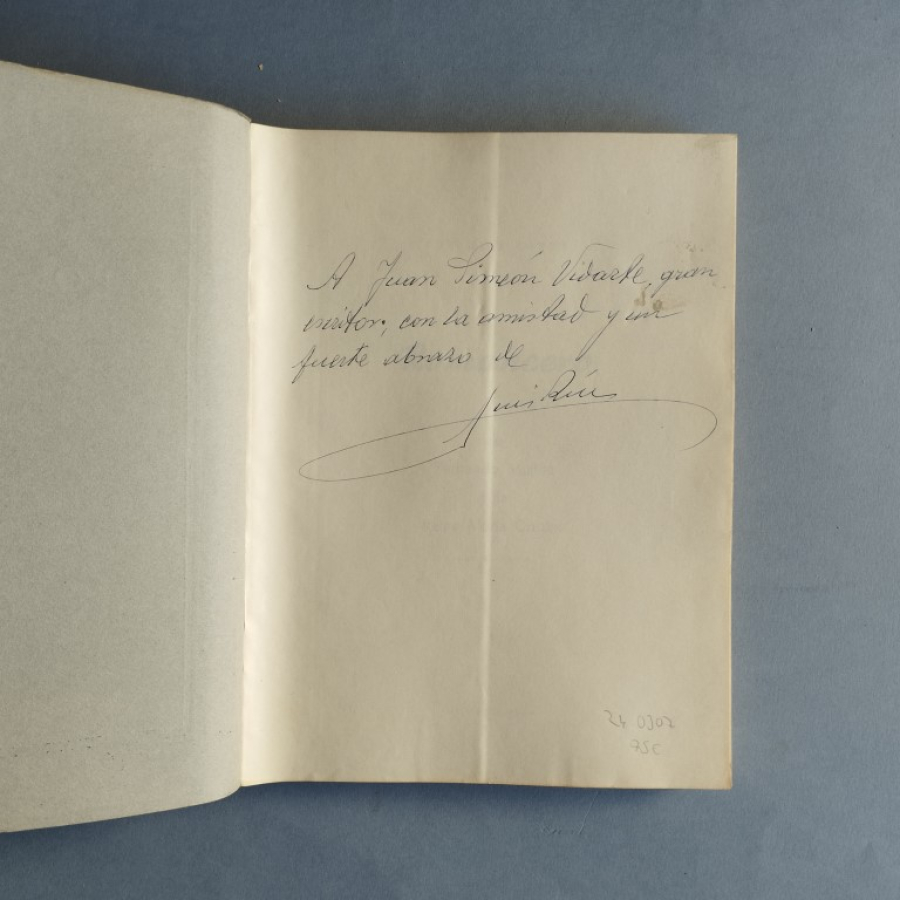 A Juan Simeón Vidarte, gran
escritor, con la amistad y un
fuerte abrazo de
Luis Rius
24 0302
75€